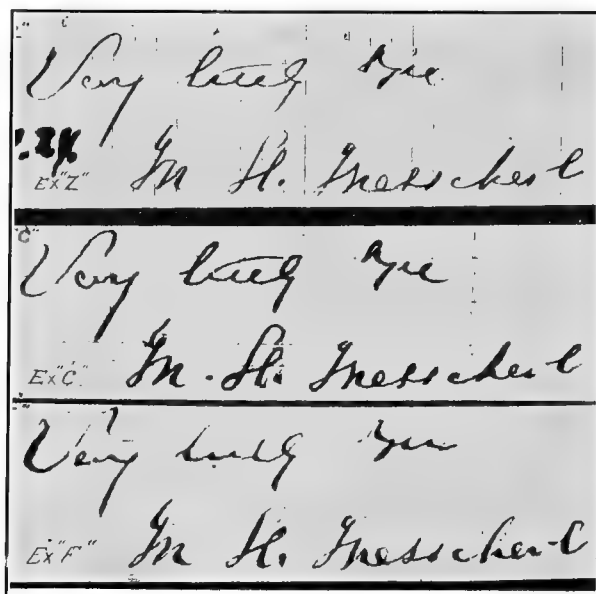 Very truly Yrs
Ex "Z" M H. Messchert
"C"
Very truly Yrs
Ex "C" M. H. Messchert
Very truly Yrs
Ex "F" M H. Messchert